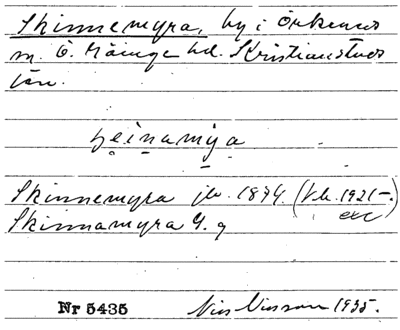 Skinnemyra, by i Örkeneds
sn. Ö. Göinge hd. Kristianstads
län.
Skinnemyra jb. 1874. (Vb. 1921–.
Skinnamyra G. 9
Nr 5435 Nils Nilsson 1935.